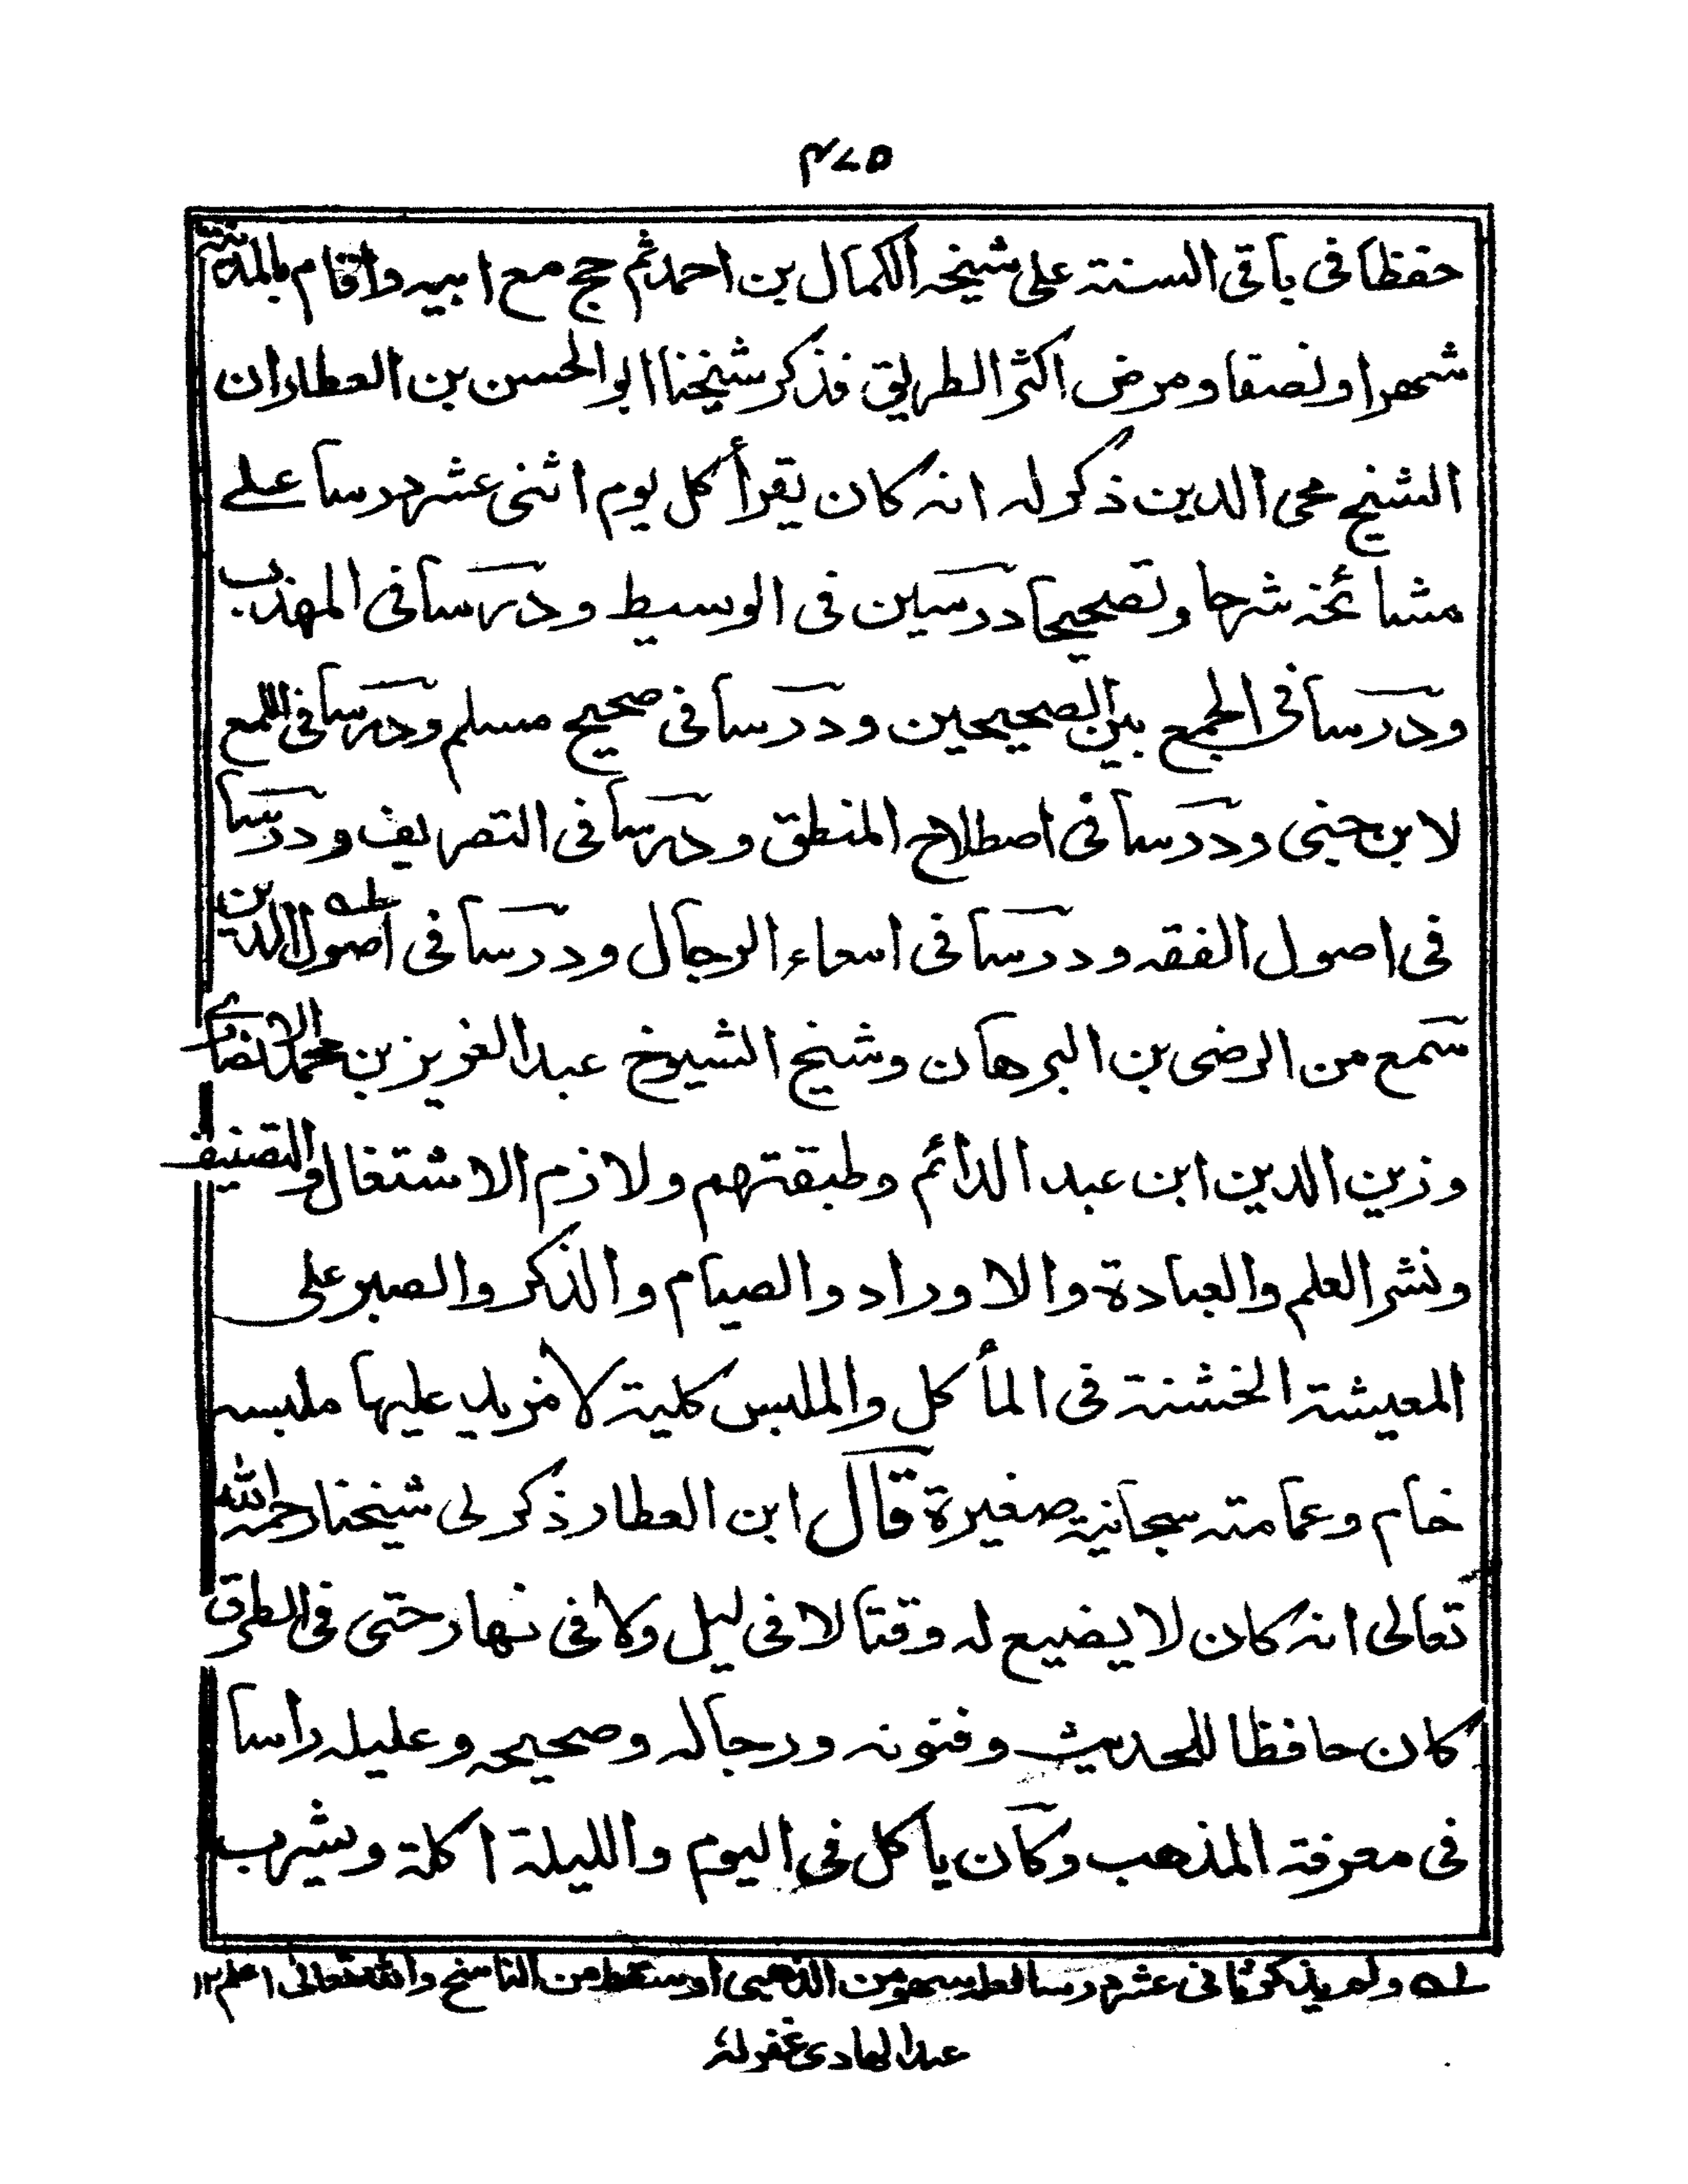 ٤٧٥
حفظا فى باقى السنة على شيخه الكمال بن احمد ثم حج مع ابيه واقام بالمدينة
شهرا ونصفا ومرض اكثر الطريق فذكر شيخنا ابو الحسن بن العطار ان
الشيخ محى الدين ذكر له انه كان يقرأ كل يوم اثنى عشر درسا على
مشائخه شرحا وتصحيحا درسين فى الوسيط ودرسا فى المهذب
ودرسا فى الجمع بين الصحيحين ودرسا فى صحيح مسلم ودرسا فى اللمع
لابن جنى ودرسا فى اصطلاح المنطق ودرسا فى التصريف ودرسا
فى اصول الفقه ودرسا فى اسماء الرجال ودرسا فى اصول الدين له
سمع من الرضى بن البرهان وشيخ الشيوخ عبد العزيز بن محمد الانصارى
وزين الدين ابن عبد الدائم وطبقتهم ولازم الاشتغال والتصنيف
ونشر العلم والعبادة والاوراد والصيام والذكر والصبر على
المعيشة الخشنة فى المأكل والملبس كلية لا مزيد عليها ملبسه
خام وعمامته سبجانية صغيرة قال ابن العطار ذكر لى شيخنا رحمه الله
تعالى انه كان لا يضيع له وقتا لا فى ليل ولا فى نهار حتى فى الطرق
كان حافظا للحديث وفنونه ورجاله وصحيحه وعليله راسا
فى معرفة المذهب وكان ياكل فى اليوم والليلة اكلة ويشرب
له ولم يذكر ثانى عشر درسا لعله سهو من الذهبى او سقط من الناسخ والله تعالى اعلم ١٢
عبد الهادى غفر له